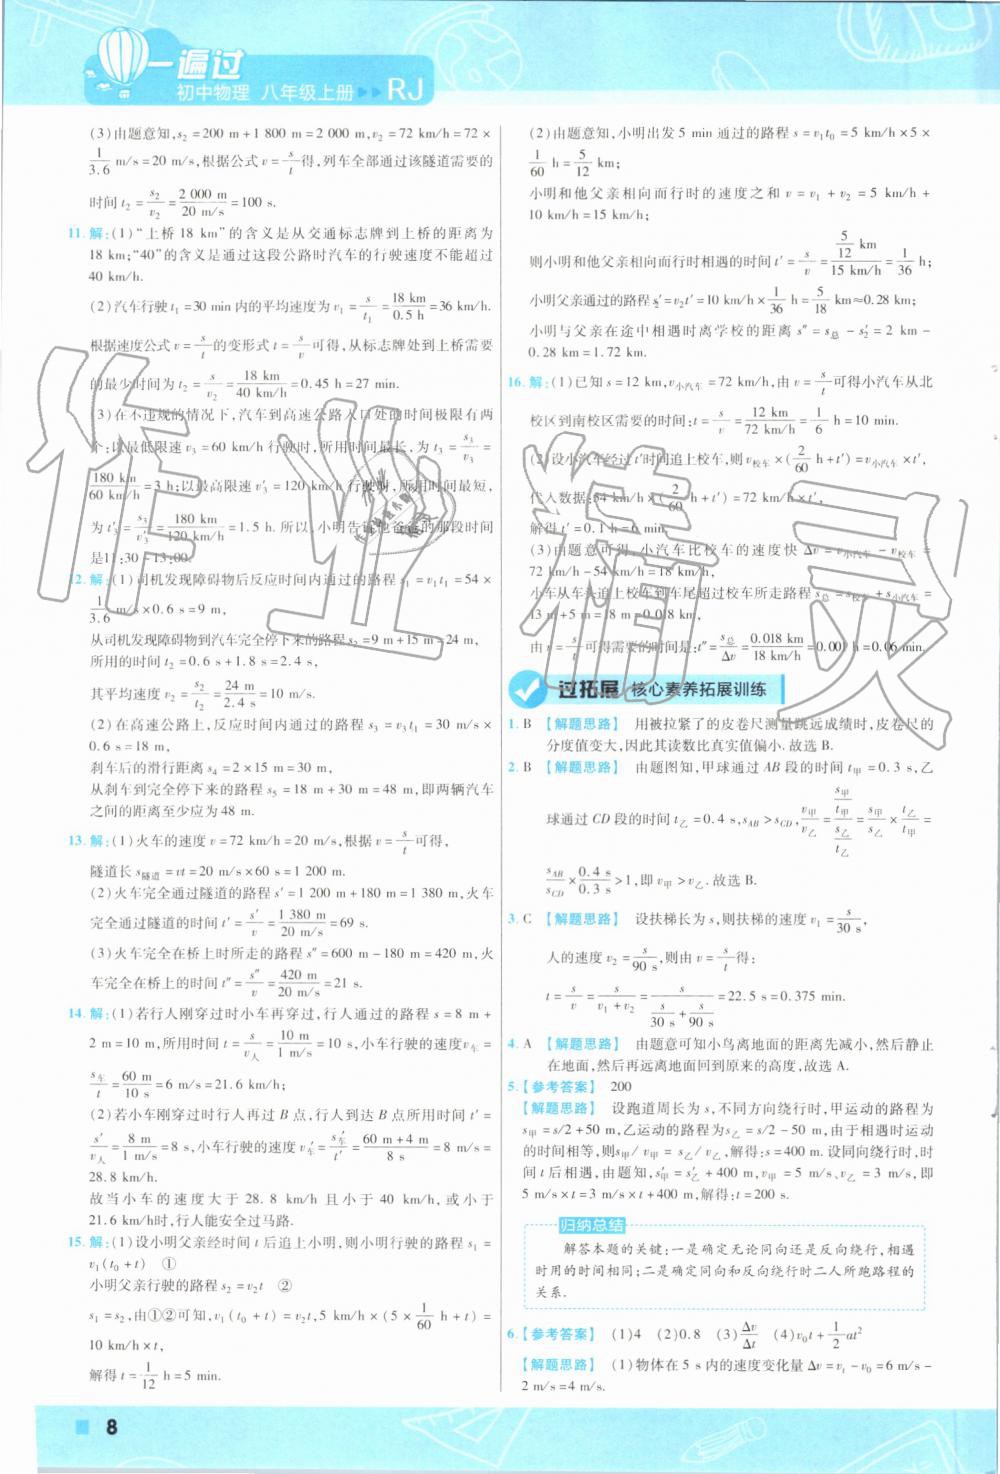 一遍过
初中物理 八年级上册 ▸▸ RJ
(3)由题意知,s₂=200 m+1 800 m=2 000 m,v₂=72 km/h=72×
1/3.6 m/s=20 m/s,根据公式 v=s/t 得,列车全部通过该隧道需要的
时间 t₂=s₂/v₂=2 000 m/20 m/s=100 s.
11.解:(1)“上桥 18 km”的含义是从交通标志牌到上桥的距离为
18 km;“40”的含义是通过这段公路时汽车的行驶速度不能超过
40 km/h.
(2)汽车行驶 t₁=30 min 内的平均速度为 v₁=s/t₁=18 km/0.5 h=36 km/h.
根据速度公式 v=s/t 的变形式 t=s/v 可得,从标志牌处到上桥需要
的最少时间为 t₂=s/v=18 km/40 km/h=0.45 h=27 min.
(3)在不违规的情况下,汽车到高速公路入口处的时间极限有两
个:以最低限速 v₃=60 km/h 行驶时,所用时间最长,为 t₃=s₃/v₃=
180 km/60 km/h=3 h;以最高限速 v′₃=120 km/h 行驶时,所用时间最短,
为 t′₃=s₃/v′₃=180 km/120 km/h=1.5 h. 所以,小明告诉他爸爸的那段时间
是11:30-13:00.
12.解:(1)司机发现障碍物后反应时间内通过的路程 s₁=v₁t₁=54×
1/3.6 m/s×0.6 s=9 m,
从司机发现障碍物到汽车完全停下来的路程 s₂=9 m+15 m=24 m,
所用的时间 t₂=0.6 s+1.8 s=2.4 s,
其平均速度 v₂=s₂/t₂=24 m/2.4 s=10 m/s.
(2)在高速公路上,反应时间内通过的路程 s₃=v₃t₁=30 m/s×
0.6 s=18 m,
刹车后的滑行距离 s₄=2×15 m=30 m,
从刹车到完全停下来的路程 s₅=18 m+30 m=48 m,即两辆汽车
之间的距离至少应为 48 m.
13.解:(1)火车的速度 v=72 km/h=20 m/s,根据 v=s/t 可得,
隧道长 s隧道=vt=20 m/s×60 s=1 200 m.
(2)火车完全通过隧道的路程 s′=1 200 m+180 m=1 380 m,火车
完全通过隧道的时间 t′=s′/v=1 380 m/20 m/s=69 s.
(3)火车完全在桥上时所走的路程 s″=600 m-180 m=420 m,火
车完全在桥上的时间 t″=s″/v=420 m/20 m/s=21 s.
14.解:(1)若行人刚穿过时小车再穿过,行人通过的路程 s=8 m+
2 m=10 m,所用时间 t=s/v人=10 m/1 m/s=10 s,小车行驶的速度 v车=
s车/t=60 m/10 s=6 m/s=21.6 km/h;
(2)若小车刚穿过时行人再过 B 点,行人到达 B 点所用时间 t′=
s′/v人=8 m/1 m/s=8 s,小车行驶的速度 v′车=s′车/t′=60 m+4 m/8 s=8 m/s=
28.8 km/h.
故当小车的速度大于 28.8 km/h 且小于 40 km/h,或小于
21.6 km/h时,行人能安全过马路.
15.解:(1)设小明父亲经时间 t 后追上小明,则小明行驶的路程 s₁=
v₁(t₀+t) ①
小明父亲行驶的路程 s₂=v₂t ②
s₁=s₂,由①②可知,v₁(t₀+t)=v₂t,5 km/h×(5×1/60 h+t)=
10 km/h×t,
解得 t=1/12 h=5 min.
(2)由题意知,小明出发 5 min 通过的路程 s=v₁t₀=5 km/h×5×
1/60 h=5/12 km;
小明和他父亲相向而行时的速度之和 v=v₁+v₂=5 km/h+
10 km/h=15 km/h;
则小明和他父亲相向而行时相遇的时间 t′=s/v=5/12 km/15 km/h=1/36 h;
小明父亲通过的路程 s′₂=v₂t′=10 km/h×1/36 h=5/18 km≈0.28 km;
小明与父亲在途中相遇时离学校的距离 s″=s总-s′₂=2 km-
0.28 km=1.72 km.
16.解:(1)已知 s=12 km,v小汽车=72 km/h,由 v=s/t 可得小汽车从北
校区到南校区需要的时间:t=s/v=12 km/72 km/h=1/6 h=10 min.
(2)设小汽车经过 t′时间追上校车,则 v校车×(2/60 h+t′)=v小汽车t′,
代入数据:54 km/h×(2/60 h+t′)=72 km/h×t′,
解得 t′=0.1 h=6 min.
(3)由题意可得,小汽车比校车的速度快 Δv=v小汽车-v校车=
72 km/h-54 km/h=18 km/h,
小车从车头追上校车到车尾超过校车所走路程 s总=s校车+s小汽车=
13 m+5 m=18 m=0.018 km,
由 v=s/t 可得需要的时间是:t″=s总/Δv=0.018 km/18 km/h=0.001 h=0.06 min.
过拓展 核心素养拓展训练
1. B 【解题思路】 用被拉紧了的皮卷尺测量跳远成绩时,皮卷尺的
分度值变大,因此其读数比真实值偏小.故选 B.
2. B 【解题思路】 由题图知,甲球通过 AB 段的时间 t甲=0.3 s,乙
球通过 CD 段的时间 t乙=0.4 s,sAB>sCD,v甲/v乙=(s甲/t甲)/(s乙/t乙)=s甲/s乙×t乙/t甲=
sAB/sCD×0.4 s/0.3 s>1,即 v甲>v乙.故选 B.
3. C 【解题思路】 设扶梯长为 s,则扶梯的速度 v₁=s/30 s,
人的速度 v₂=s/90 s,则由 v=s/t 得:
t=s/v=s/(v₁+v₂)=s/(s/30 s+s/90 s)=22.5 s=0.375 min.
4. A 【解题思路】 由题意可知小鸟离地面的距离先减小,然后静止
在地面,然后再远离地面回到原来的高度,故选 A.
5.【参考答案】 200
【解题思路】 设跑道周长为 s,不同方向绕行时,甲运动的路程为
s甲=s/2+50 m,乙运动的路程为s乙=s/2-50 m,由于相遇时运动
的时间相等,则s甲/v甲=s乙/v乙,解得:s=400 m.设同向绕行时,
时间 t 后相遇,由题知,s′甲=s′乙+400 m,v甲=5 m/s、v乙=3 m/s,即
5 m/s×t=3 m/s×t+400 m,解得:t=200 s.
归纳总结
解答本题的关键:一是确定无论同向还是反向绕行,相遇
时用的时间相同;二是确定同向和反向绕行时二人所跑路程的
关系.
6.【参考答案】 (1)4 (2)0.8 (3)Δv/Δt (4)v₀t+1/2at²
【解题思路】 (1)物体在 5 s 内的速度变化量 Δv=vₜ-v₀=6 m/s-
2 m/s=4 m/s.
8
作业精灵